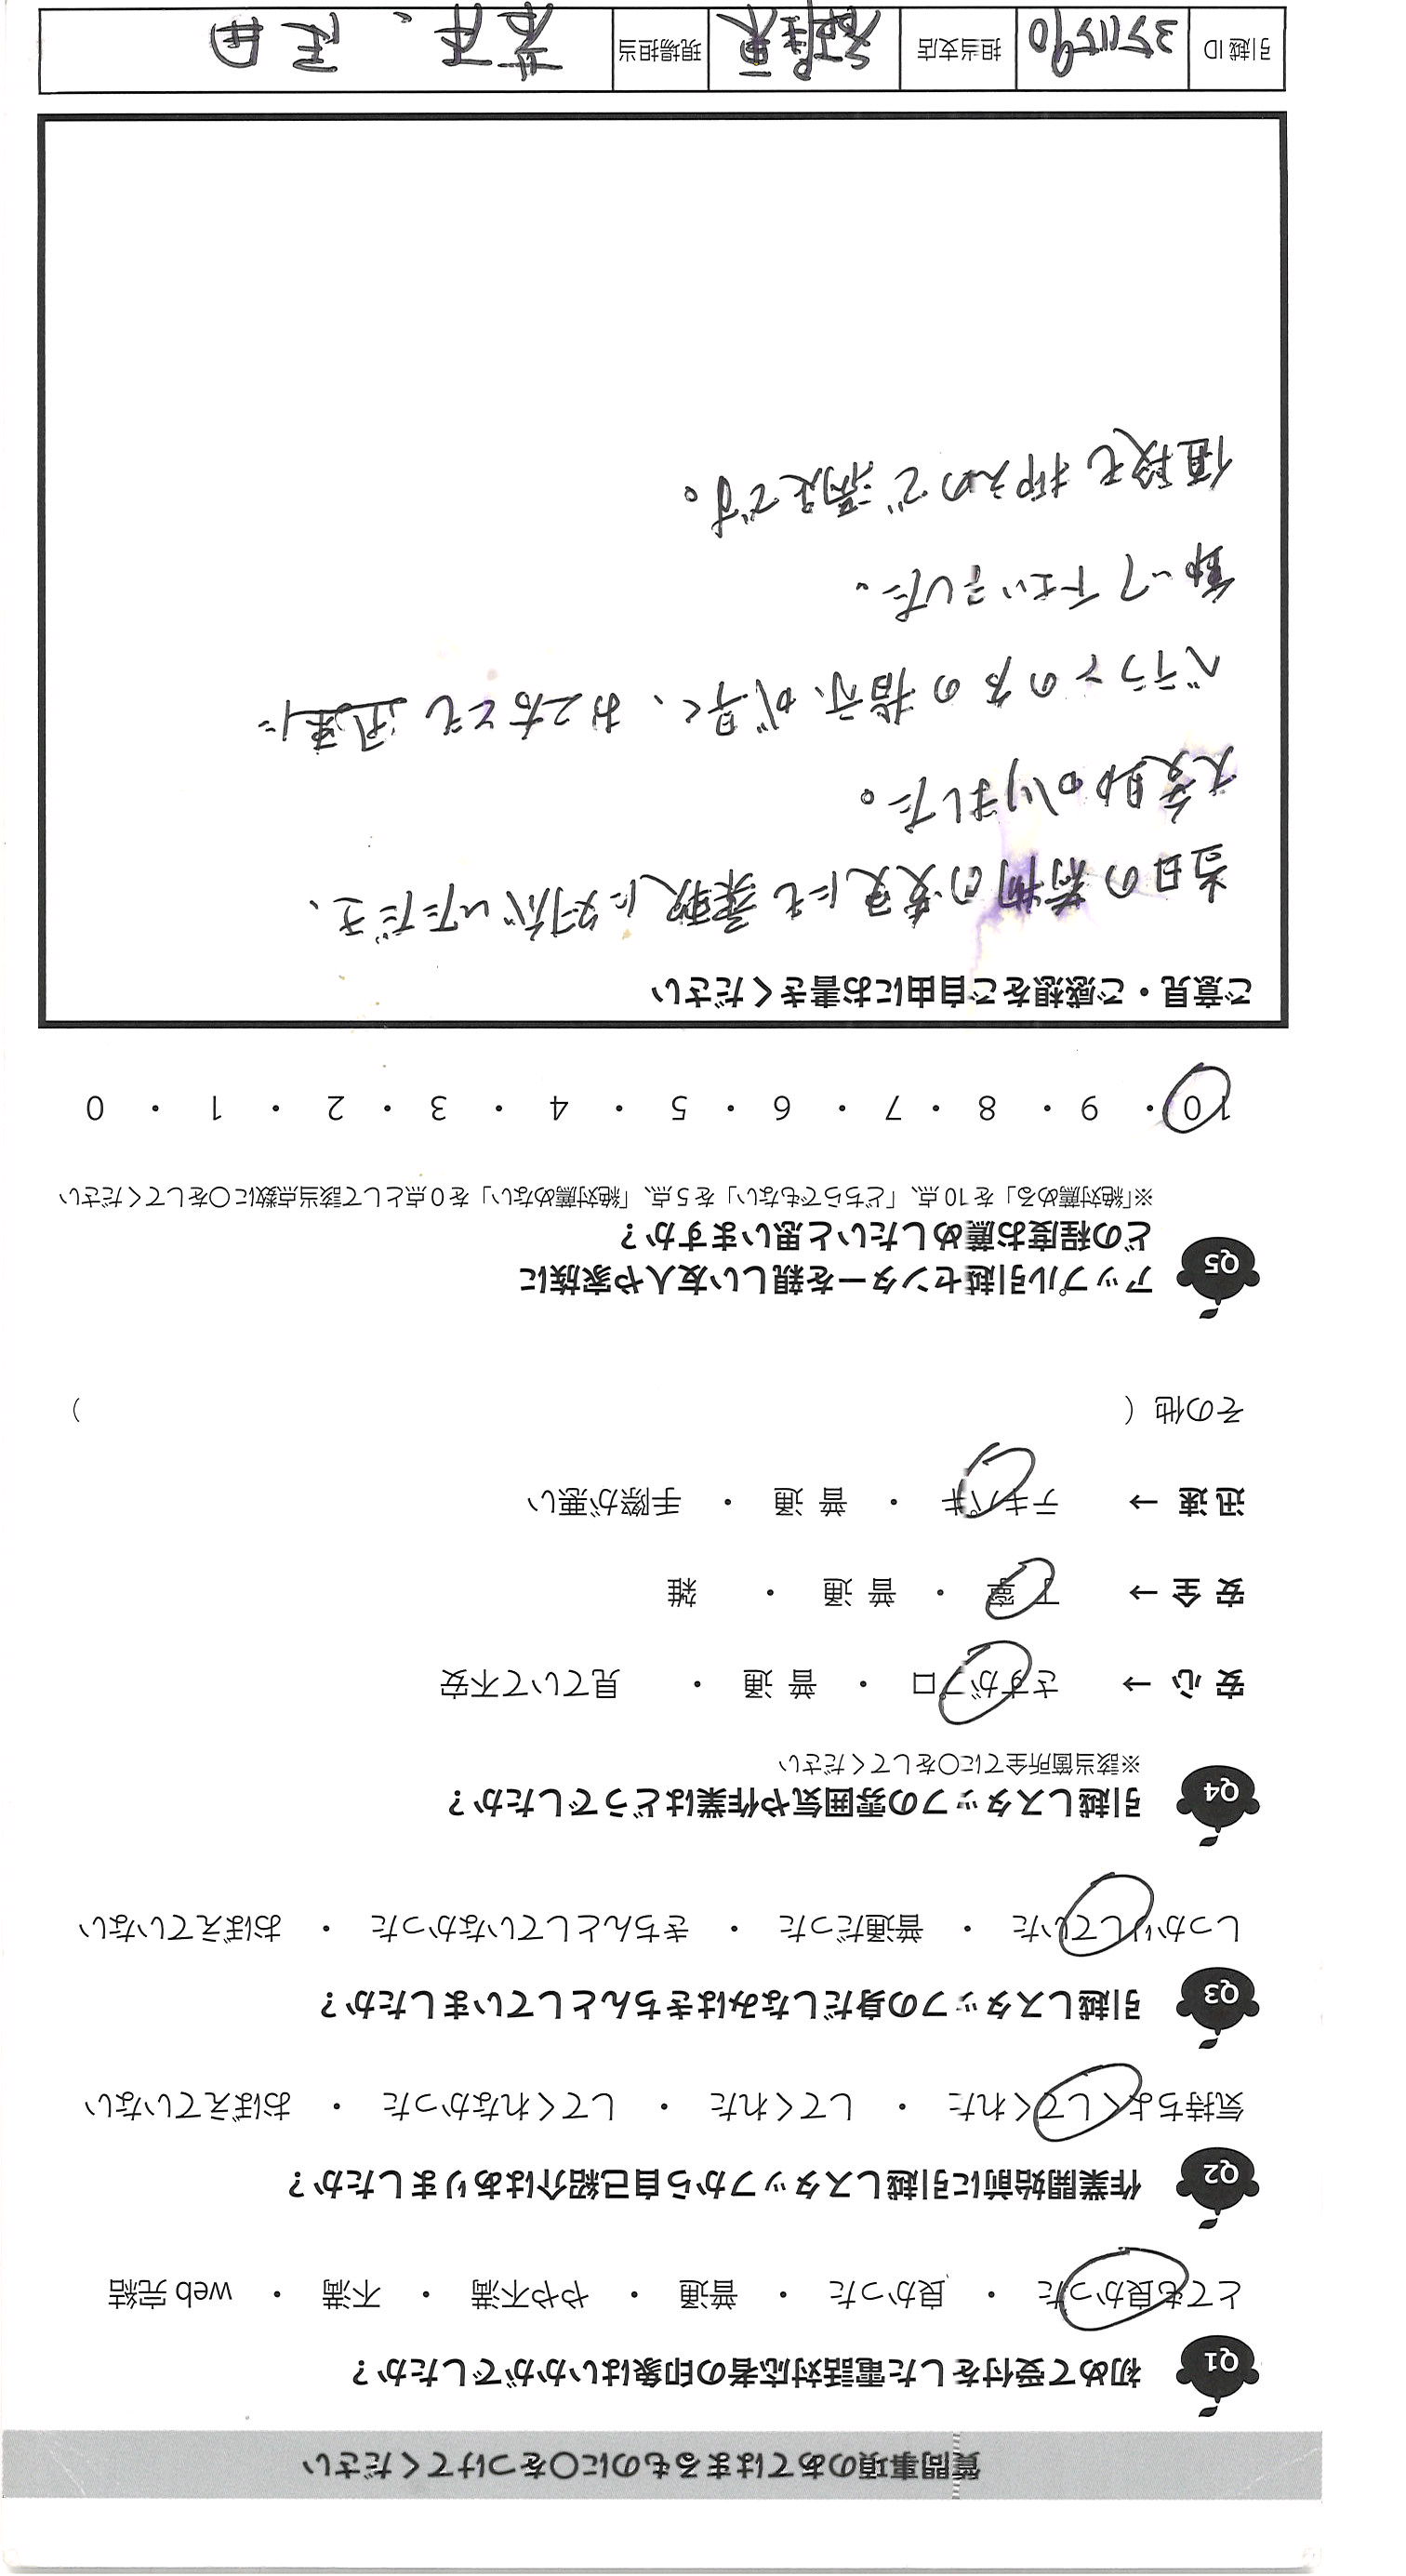 質問事項のあてはまるものに○をつけてください
Q1 初めて受付をした電話対応者の印象はいかがでしたか？
とても良かった ・ 良かった ・ 普通 ・ やや不満 ・ 不満 ・ web 完結
Q2 作業開始前に引越しスタッフから自己紹介はありましたか？
気持ちよくしてくれた ・ してくれた ・ してくれなかった ・ おぼえていない
Q3 引越しスタッフの身だしなみはきちんとしていましたか？
しっかりしていた ・ 普通だった ・ きちんとしていなかった ・ おぼえていない
Q4 引越しスタッフの雰囲気や作業はどうでしたか？
※該当箇所全てに○をしてください
安 心 → さすがプロ ・ 普 通 ・ 見ていて不安
安 全 → 丁 寧 ・ 普 通 ・ 雑
迅 速 → テキパキ ・ 普 通 ・ 手際が悪い
その他（ ）
Q5 アップル引越センターを親しい友人や家族に
どの程度お薦めしたいと思いますか？
※「絶対薦める」を 10 点、「どちらでもない」を 5 点、「絶対薦めない」を 0 点として該当点数に○をしてください
10 ・ 9 ・ 8 ・ 7 ・ 6 ・ 5 ・ 4 ・ 3 ・ 2 ・ 1 ・ 0
ご意見・ご感想をご自由にお書きください
当日の荷物の変更にも柔軟に対応いただき、
大変助かりました。
ベテランの方の指示が早く、お二方とも迅速に
動いて下さいました。
値段も抑えめで満足です。
引越 ID 3571590 担当支店 現場担当